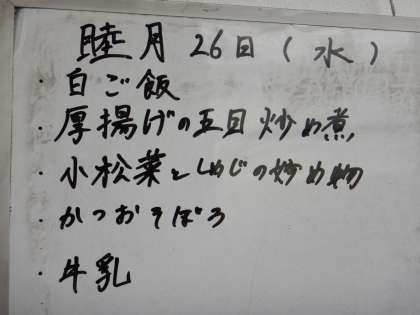 睦月26日(水)
・白ご飯
・厚揚げの五目炒め煮
・小松菜としめじの炒め物
・かつおそぼろ
・牛乳